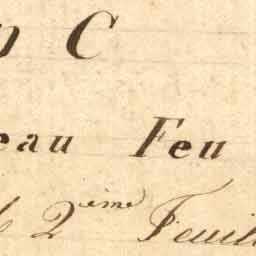 C
eau Feu
2ème Feuil